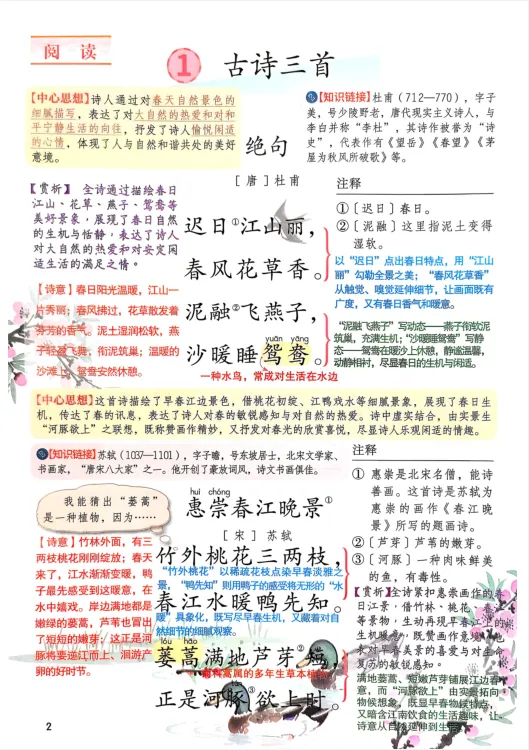 阅 读
1 古诗三首
【中心思想】诗人通过对春天自然景色的
细腻描写，表达了对大自然的热爱和对和
平宁静生活的向往，抒发了诗人愉悦闲适
的心情，体现了人与自然和谐共处的美好
意境。
【知识链接】杜甫（712—770），字子
美，号少陵野老，唐代现实主义诗人，与
李白并称“李杜”，其诗作被誉为“诗
史”，代表作有《望岳》《春望》《茅
屋为秋风所破歌》等。
绝句
［唐］杜甫
【赏析】 全诗通过描绘春日
江山、花草、燕子、鸳鸯等
美好景象，展现了春日自然
的生机与恬静，表达了诗人
对大自然的热爱和对安定闲
适生活的满足之情。
【诗意】春日阳光温暖，江山一
片秀丽；春风拂过，花草散发着
芬芳的香气，泥土湿润松软，燕
子轻盈飞舞，衔泥筑巢；温暖的
沙滩上，鸳鸯安然休憩。
迟日①江山丽，
春风花草香。
泥融②飞燕子，
yuān yāng
沙暖睡鸳鸯。
一种水鸟，常成对生活在水边
注释
①〔迟日〕春日。
②〔泥融〕这里指泥土变得
湿软。
以“迟日”点出春日特点，用“江山
丽”勾勒全景之美；“春风花草香”
从触觉、嗅觉延伸细节，让画面既有
广度，又有春日香气和暖意。
“泥融飞燕子”写动态——燕子衔软泥
筑巢，充满生机；“沙暖睡鸳鸯”写静
态——鸳鸯在暖沙上休憩，静谧温馨，
动静相衬，尽显春日的生机与闲适。
【中心思想】这首诗描绘了早春江边景色，借桃花初绽、江鸭戏水等细腻景象，展现了春日生
机，传达了春的讯息，表达了诗人对春的敏锐感知与对自然的热爱。诗中虚实结合，由实景生
“河豚欲上”之联想，既称赞画作精妙，又抒发对春光的欣赏喜悦，尽显诗人乐观闲适的情趣。
【知识链接】苏轼（1037—1101），字子瞻，号东坡居士，北宋文学家、
书画家，“唐宋八大家”之一。他开创了豪放词风，诗文书画俱佳。
我能猜出“蒌蒿”
是一种植物，因为……
huì chóng
惠崇春江晚景①
［宋］苏轼
【诗意】竹林外面，有三
两枝桃花刚刚绽放；春天
来了，江水渐渐变暖，鸭
子最先感受到这暖意，在
水中嬉戏。岸边满地都是
嫩绿的蒌蒿，芦苇也冒出
了短短的嫩芽，这正是河
豚将要逆江而上、洄游产
卵的好时节。
竹外桃花三两枝，
“竹外桃花”以稀疏花枝点染早春淡雅之
景，“鸭先知”则用鸭子的感受将无形的“水
春江水暖鸭先知。
暖”具象化，既写尽早春生机，又藏着对自
然细节的细腻观察。
lóu hāo
蒌蒿满地芦芽②短，
正是河豚③欲上时。
注释
① 惠崇是北宋名僧，能诗
善画。这首诗是苏轼为
惠崇的画作《春江晚
景》所写的题画诗。
②〔芦芽〕芦苇的嫩芽。
③〔河豚〕一种肉味鲜美
的鱼，有毒性。
【赏析】全诗紧扣惠崇画作的春
日江景，借竹林、桃花、春江
等景物，生动再现早春江上的
生机暖意，既赞画作意境，也
长对早春美景的喜爱与对生命
复苏的敏锐感知。
满地蒌蒿、短嫩芦芽铺展江边春
意，而“河豚欲上”由实景拓向
物候想象，既显早春物候特点，
又暗含江南饮食的生活趣味，让
诗意从自然延伸到生活。
2